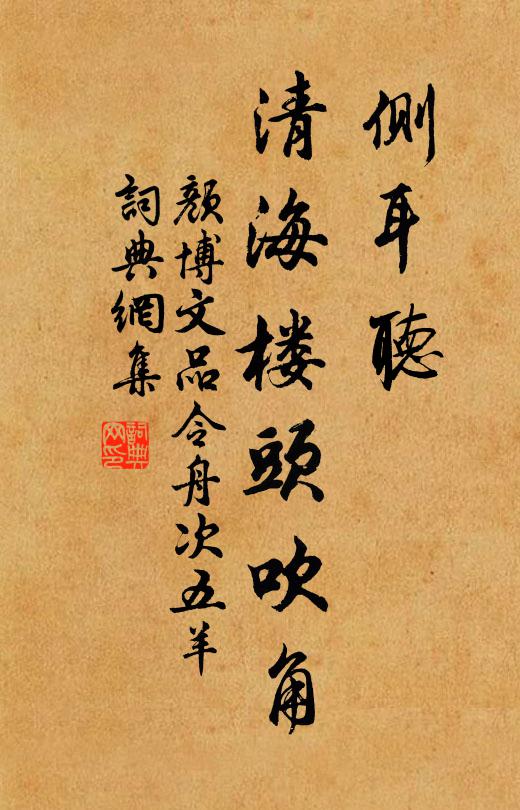 側耳聽
清海楼頭吹角
顏博文品令舟次五羊
詞典網集
詞典網印